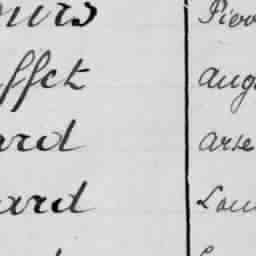 ours Pier
ffet aug
ard arse
ard Lou